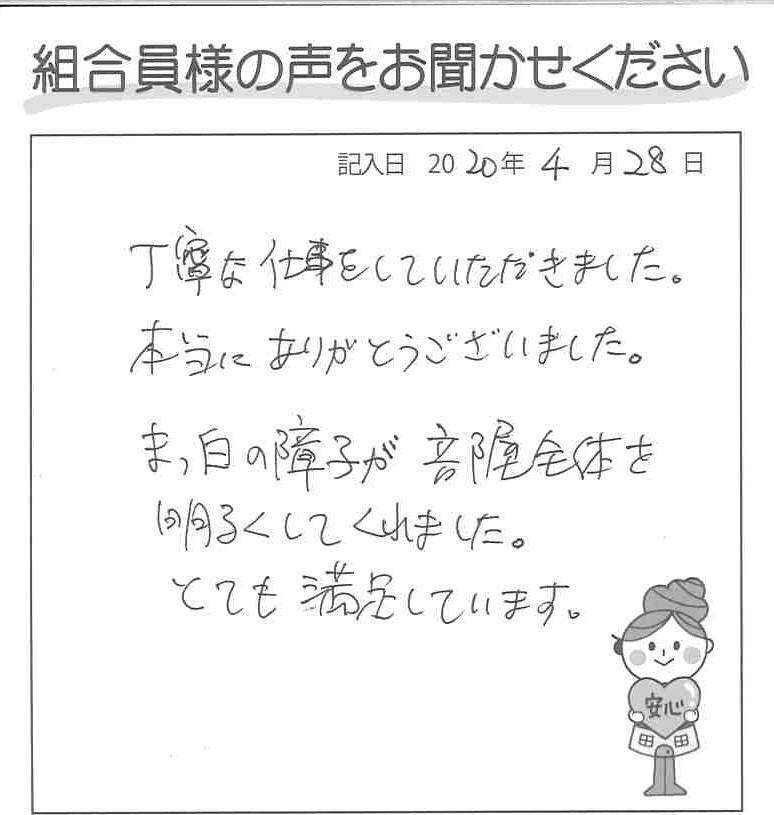 組合員様の声をお聞かせください
記入日 2020年 4月28日
丁寧な仕事をしていただきました。
本当にありがとうございました。
まっ白の障子が部屋全体を
明るくしてくれました。
とても満足しています。
安心